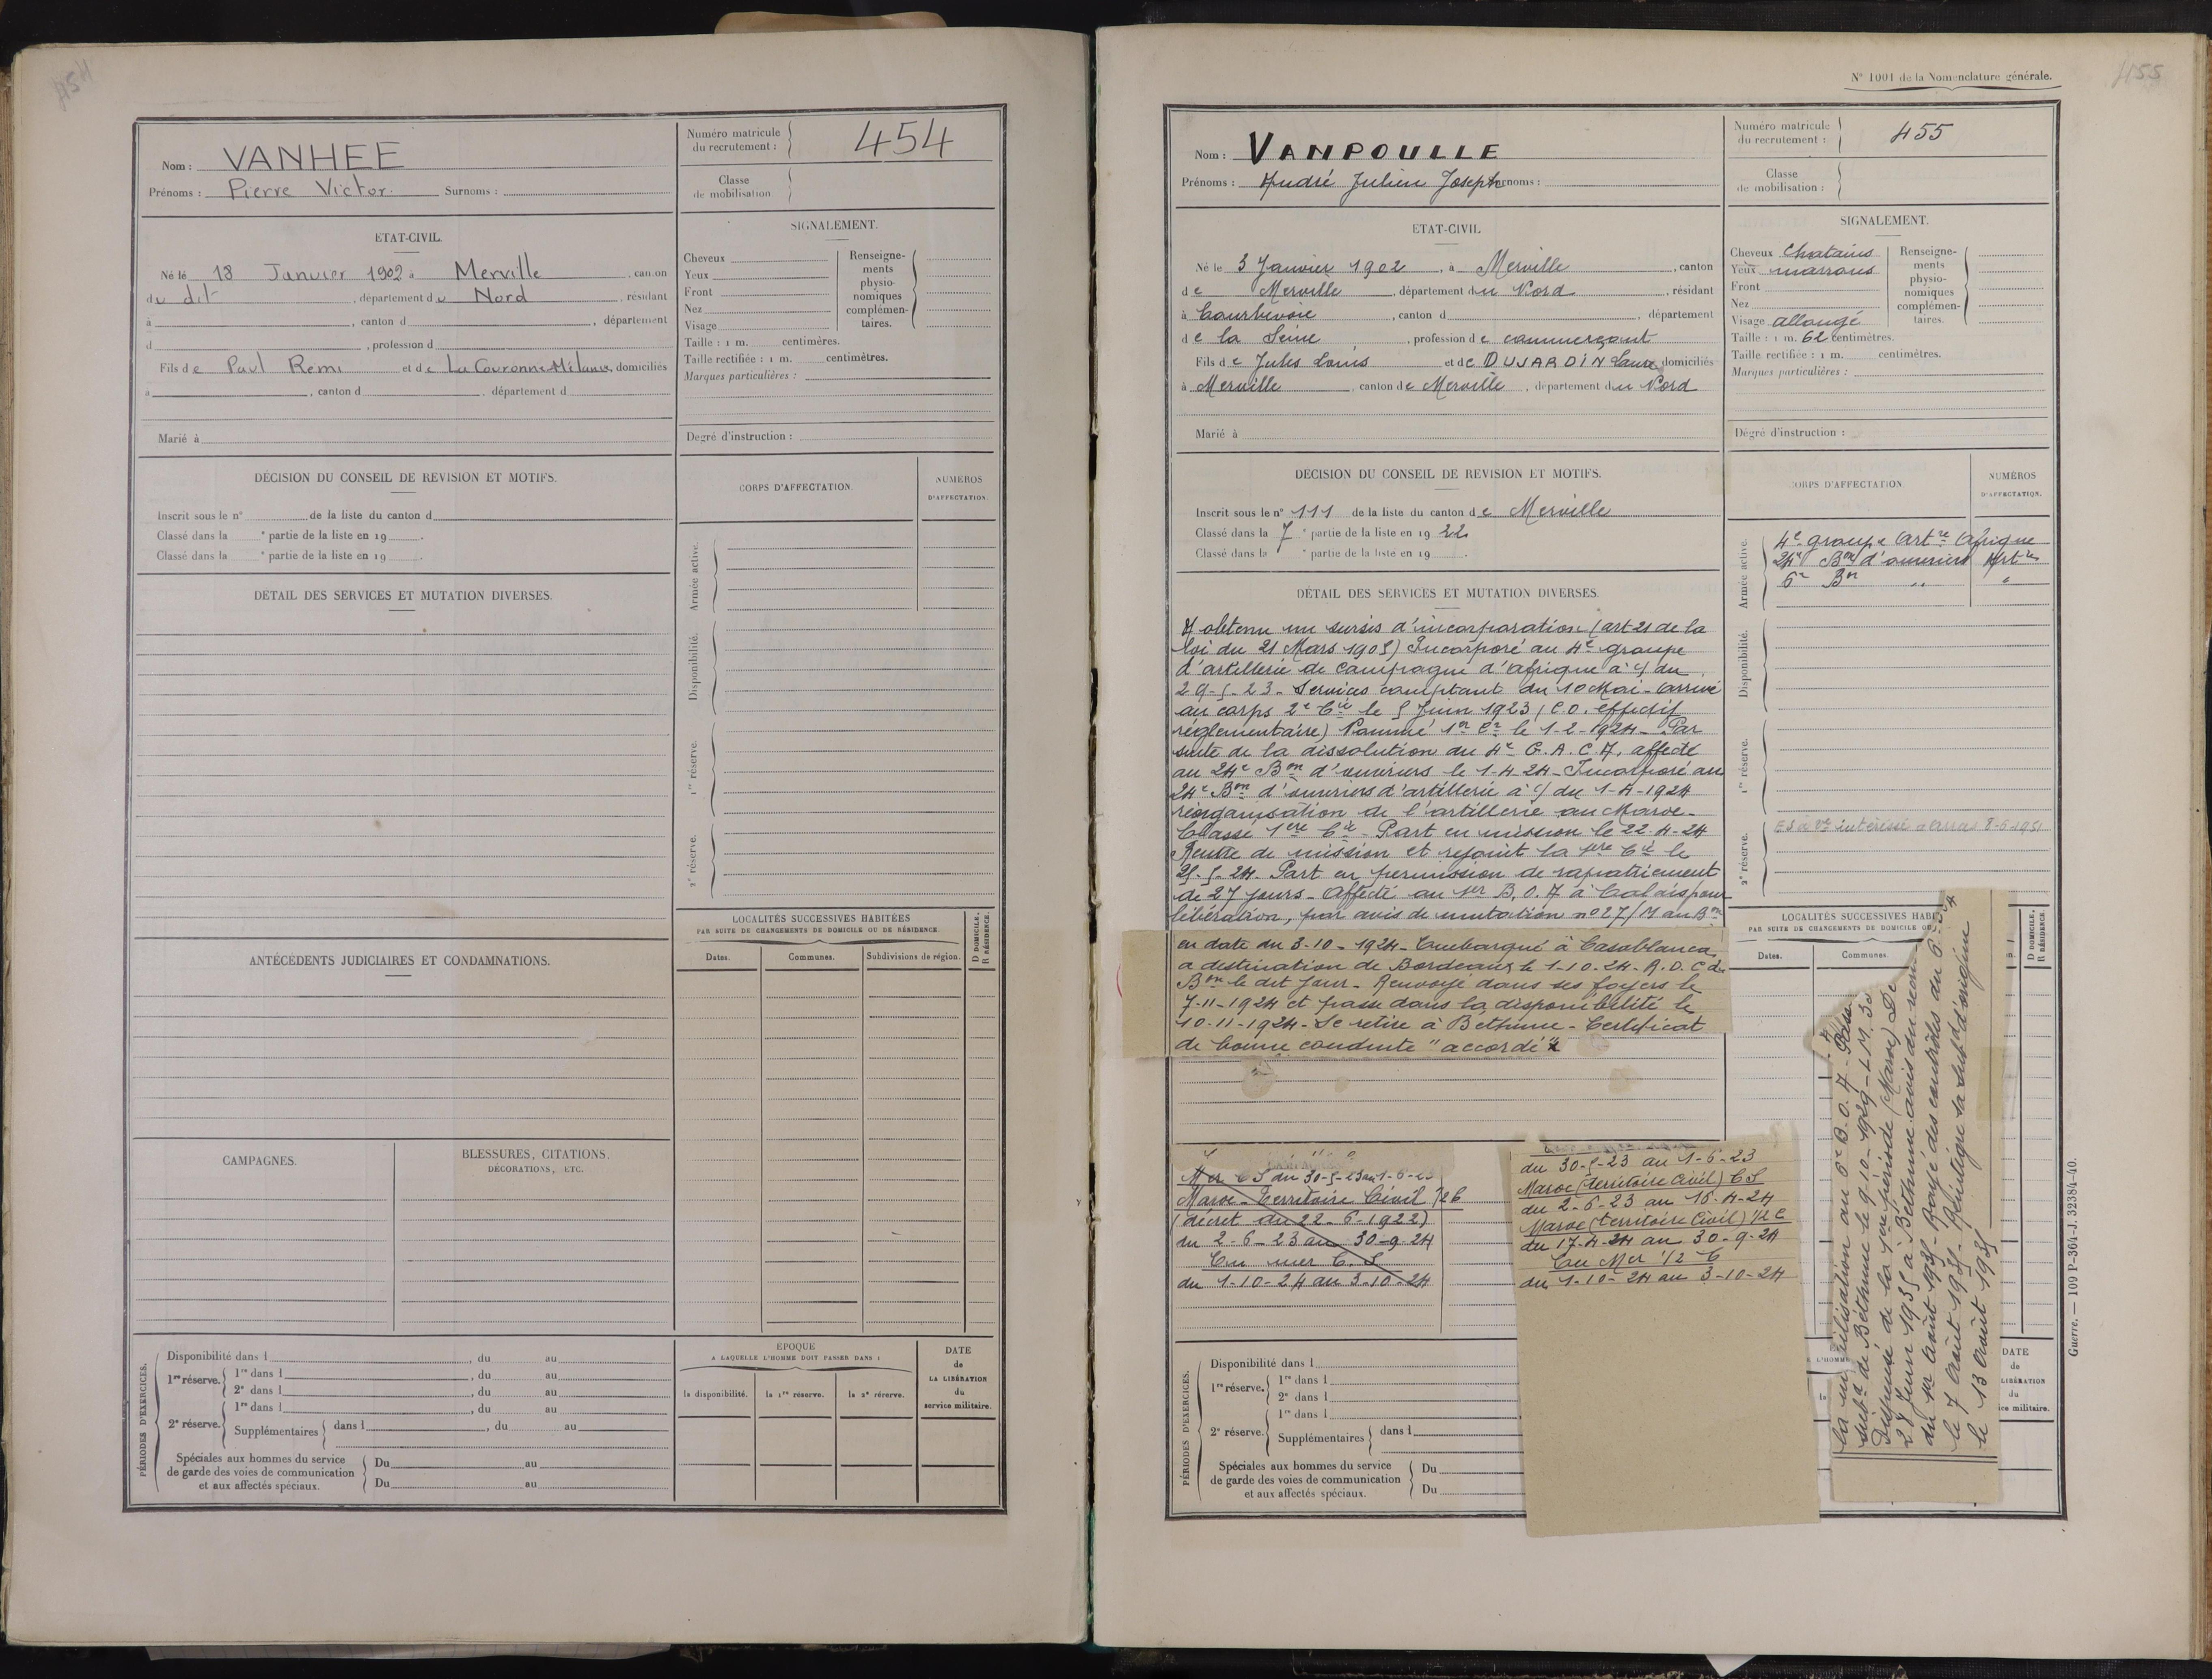 454
Nom : VANHEE
Prénoms : Pierre Victor. Surnoms :
Numéro matricule du recrutement : 454
Classe de mobilisation
ETAT-CIVIL.
Né le 18 Janvier 1902 à Merville, canton
du dit, département du Nord, résidant
à , canton d , département
d , profession d
Fils de Paul Remi et de La Couronne Mélanie, domiciliés
à , canton d , département d
Marié à
SIGNALEMENT.
Cheveux
Yeux
Front
Nez
Visage
Renseignements physionomiques complémentaires.
Taille : 1 m. centimères.
Taille rectifiée : 1 m. centimètres.
Marques particulières :
Degré d'instruction :
DÉCISION DU CONSEIL DE REVISION ET MOTIFS.
Inscrit sous le n° de la liste du canton d
Classé dans la ° partie de la liste en 19 .
Classé dans la ° partie de la liste en 19 .
DETAIL DES SERVICES ET MUTATION DIVERSES.
CORPS D'AFFECTATION.
NUMÉROS D'AFFECTATION.
Armée active.
Disponibilité.
1re réserve.
2e réserve.
ANTÉCÉDENTS JUDICIAIRES ET CONDAMNATIONS.
LOCALITÉS SUCCESSIVES HABITÉES
PAR SUITE DE CHANGEMENTS DE DOMICILE OU DE RÉSIDENCE.
Dates. Communes. Subdivisions de région.
D DOMICILE. R RÉSIDENCE.
CAMPAGNES.
BLESSURES, CITATIONS, DÉCORATIONS, ETC.
PÉRIODES D'EXERCICES.
Disponibilité dans l , du au
1re réserve. 1re dans l , du au
2e dans l , du au
2e réserve. 1re dans l , du au
Supplémentaires dans l , du au
Spéciales aux hommes du service de garde des voies de communication et aux affectés spéciaux.
Du au
Du au
EPOQUE
A LAQUELLE L'HOMME DOIT PASSER DANS :
la disponibilité. la 1re réserve. la 2e réserve.
DATE de LA LIBÉRATION du service militaire.
N° 1001 de la Nomenclature générale.
455
Nom : VANPOULLE
Prénoms : André Julien Joseph
Numéro matricule du recrutement : 455
Classe de mobilisation :
ETAT-CIVIL
Né le 3 Janvier 1902, à Merville, canton
de Merville, département du Nord, résidant
à Courbevoie, canton d , département
de la Seine, profession de commerçant
Fils de Jules Louis et de DUJARDIN Laure domiciliés
à Merville, canton de Merville, département du Nord
Marié à
SIGNALEMENT.
Cheveux Chatains
Yeux marrons
Front
Nez
Visage allongé
Renseignements physionomiques complémentaires.
Taille : 1 m. 62 centimètres.
Taille rectifiée : 1 m. centimètres.
Marques particulières :
Degré d'instruction :
DECISION DU CONSEIL DE REVISION ET MOTIFS.
Inscrit sous le n° 111 de la liste du canton de Merville
Classé dans la 7 ° partie de la liste en 1922
Classé dans la ° partie de la liste en 19 .
CORPS D'AFFECTATION.
NUMÉROS D'AFFECTATION.
Armée active.
4e groupe Artie Afrique
24e Bon d'ouvriers Artie
6e Bon " "
Disponibilité.
1re réserve.
2e réserve.
intéressé 8-6-1951
DÉTAIL DES SERVICES ET MUTATION DIVERSES.
A obtenu un sursis d'incorporation (art 21 de la
loi du 21 Mars 1905) Incorporé au 4e groupe
d'artillerie de campagne d'afrique à c/ du
29-5-23. Services comptant du 10 Mai - Arrivé
au corps 2e Cie le 5 Juin 1923 (C.O. effectif
réglementaire) Nommé 1er Cr le 1-2-1924 - Par
suite de la dissolution du 4e G.A.C.A. affecté
au 24e Bon d'ouvriers le 1-4-24 - Incorporé au
24e Bon d'ouvriers d'artillerie à c/ du 1-4-1924
réorganisation de l'artillerie au Maroc -
Classé 1ère Cie - Part en mission le 22-4-24
Rentre de mission et rejoint la 1ère Cie le
25-5-24. Part en permission de rapatriement
de 27 jours - Affecté au 1er B.O.A à Calais pour
libération, par avis de mutation n° 27/M au Bon
en date du 3-10-1924 - Embarqué à Casablanca
a destination de Bordeaux le 1-10-24 - R.D.C du
Bon le dit jour - Renvoyé dans ses foyers le
7-11-1924 et passe dans la disponibilité le
10-11-1924 - Se retire à Béthune - Certificat
de bonne conduite "accordé"
LOCALITÉS SUCCESSIVES HABI
PAR SUITE DE CHANGEMENTS DE DOMICILE OU
Dates. Communes.
D DOMICILE. R RÉSIDENCE.
Mer CS du 30-5-23 au 1-6-23
Maroc - Territoire Civil 1/2 C
(décret du 22-6-1922)
du 2-6-23 au 30-9-24
En mer C.S
du 1-10-24 au 3-10-24
du 30-5-23 au 1-6-23
Maroc (territoire civil) CS
du 2-6-23 au 16-4-24
Maroc (territoire Civil) 1/2 C
du 17-4-24 au 30-9-24
En Mer 1/2 C
du 1-10-24 au 3-10-24
la mobilisation au 6e B.O.A - Passé
subd de Béthune le 9-10-1929 - L.M.
Dispensé de la 1ère période (Maroc)
27 Juin 1935 à Béthune avis du
du 1er Août 1935 - Rayé des contrôles du 6e
le 7 Août 1935 - Réintègre sa subd d'origine
le 13 Août 1935
PÉRIODES D'EXERCICES.
Disponibilité dans l
1re réserve. 1re dans l
2e dans l
2e réserve. 1re dans l
Supplémentaires dans l
Spéciales aux hommes du service de garde des voies de communication et aux affectés spéciaux.
Du
Du
L'HOMME
DATE de LIBÉRATION du militaire.
Guerre. — 109 P-364-J. 32384-40.